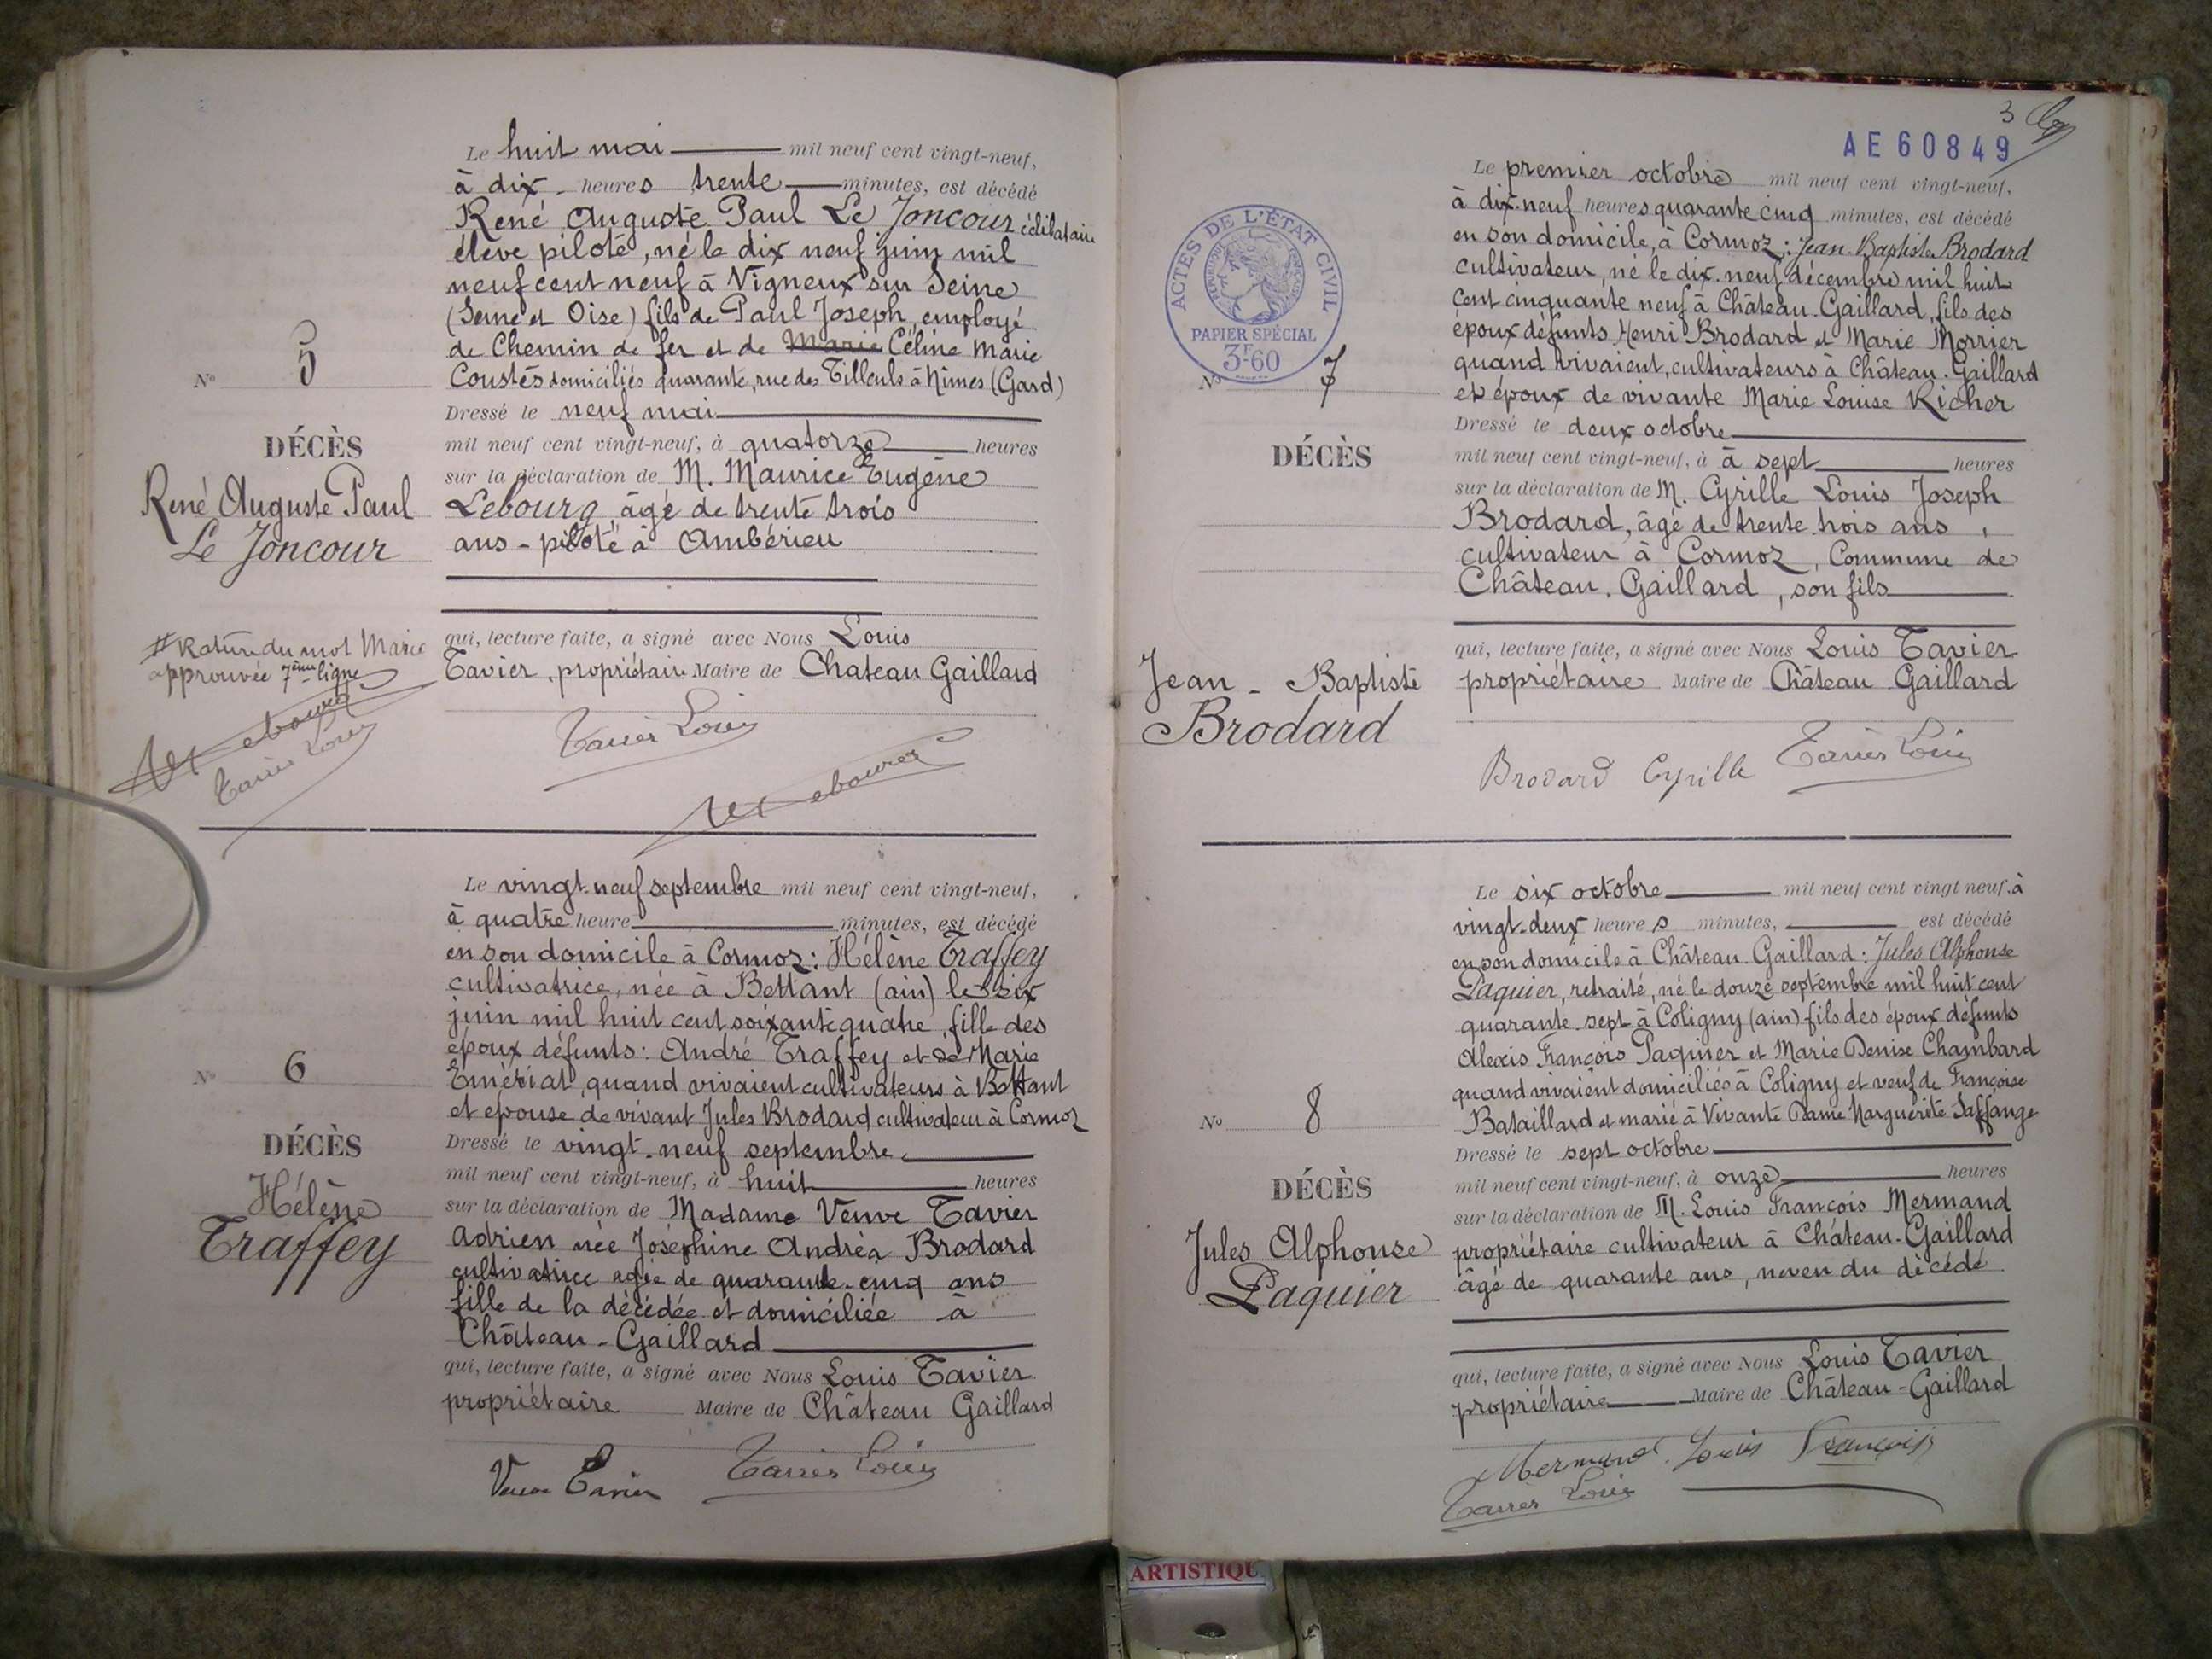 Le huit mai mil neuf cent vingt-neuf,
à dix heures trente minutes, est décédé
René Auguste Paul Le Joncour célibataire
élève pilote, né le dix neuf juin mil
neuf cent neuf à Vigneux sur Seine
(Seine et Oise) fils de Paul Joseph, employé
de Chemin de fer et de Marie Céline Marie
Coustès domiciliés quarante, rue des Tilleuls à Nîmes (Gard)
Dressé le neuf mai
mil neuf cent vingt-neuf, à quatorze heures
sur la déclaration de M. Maurice Eugène
Lebourg, âgé de trente trois
ans - pilote à Ambérieu
qui, lecture faite, a signé avec Nous Louis
Tavier, propriétaire Maire de Chateau Gaillard
Tavier Louis
Lebourg
No 5
DÉCÈS
René Auguste Paul
Le Joncour
Rature du mot Marie
approuvée 7ème ligne
Lebourg
Tavier Louis
Le vingt-neuf septembre mil neuf cent vingt-neuf,
à quatre heure minutes, est décédé
en son domicile à Cormoz : Hélène Traffey
cultivatrice, née à Bettant (ain) le six
juin mil huit cent soixante quatre, fille des
époux défunts : André Traffey et de Marie
Émériat, quand vivaient cultivateurs à Bettant
et epouse de vivant Jules Brodard cultivateur à Cormoz
Dressé le vingt-neuf septembre
mil neuf cent vingt-neuf, à huit heures
sur la déclaration de Madame Veuve Tavier
Adrien née Joséphine Andréa Brodard
cultivatrice agée de quarante-cinq ans
fille de la décédée et domiciliée à
Château-Gaillard
qui, lecture faite, a signé avec Nous Louis Tavier
propriétaire Maire de Château Gaillard
Veuve Tavier Tavier Louis
No 6
DÉCÈS
Hélène
Traffey
3
AE 60849
ACTES DE L'ÉTAT CIVIL
RÉPUBLIQUE FRANÇAISE
PAPIER SPÉCIAL
3F60
Le premier octobre mil neuf cent vingt-neuf,
à dix-neuf heures quarante cinq minutes, est décédé
en son domicile, à Cormoz : Jean-Baptiste Brodard
cultivateur, né le dix-neuf décembre mil huit
cent cinquante neuf à Château-Gaillard, fils des
époux défunts Henri Brodard et Marie Morrier
quand vivaient, cultivateurs à Château-Gaillard
et époux de vivante Marie Louise Richer
Dressé le deux octobre
mil neuf cent vingt-neuf, à à sept heures
sur la déclaration de M. Cyrille Louis Joseph
Brodard, âgé de trente trois ans,
cultivateur à Cormoz, Commune de
Château-Gaillard, son fils
qui, lecture faite, a signé avec Nous Louis Tavier
propriétaire Maire de Château Gaillard
Brodard Cyrille Tavier Louis
No 7
DÉCÈS
Jean-Baptiste
Brodard
Le six octobre mil neuf cent vingt neuf, à
vingt-deux heures minutes, est décédé
en son domicile à Château-Gaillard : Jules Alphonse
Paquier, retraité, né le douze septembre mil huit cent
quarante-sept à Coligny (ain) fils des époux défunts
Alexis François Paquier et Marie Denise Chambard
quand vivaient domiciliés à Coligny et veuf de Françoise
Bataillard et marié à Vivante Dame Marguerite Saffange
Dressé le sept octobre
mil neuf cent vingt-neuf, à onze heures
sur la déclaration de M. Louis François Mermand
propriétaire cultivateur à Château-Gaillard
âgé de quarante ans, neveu du décédé
qui, lecture faite, a signé avec Nous Louis Tavier
propriétaire Maire de Château-Gaillard
Mermand Louis François
Tavier Louis
No 8
DÉCÈS
Jules Alphonse
Paquier
ARTISTIQU